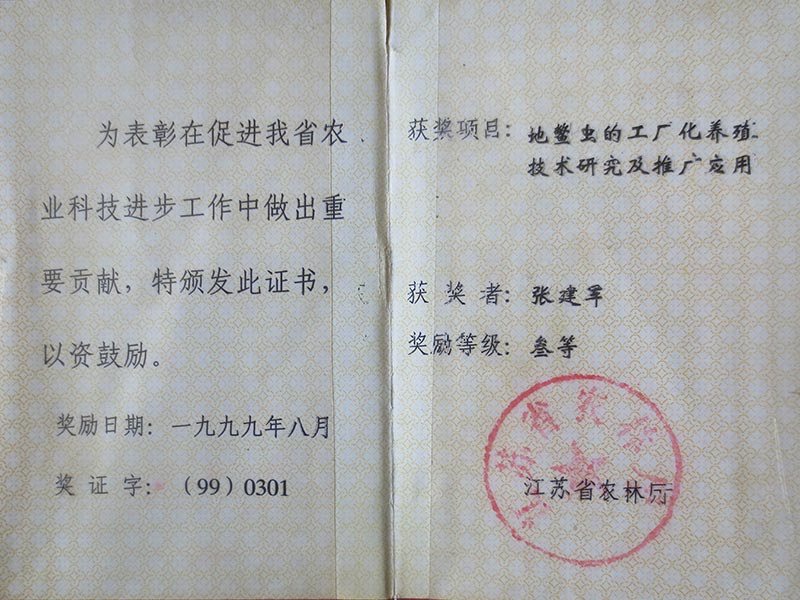 为表彰在促进我省农
业科技进步工作中做出重
要贡献，特颁发此证书，
以资鼓励。
奖励日期：一九九九年八月
奖证字：（99）0301
获奖项目：地鳖虫的工厂化养殖
技术研究及推广应用
获奖者：张建军
奖励等级：叁等
江苏省农林厅